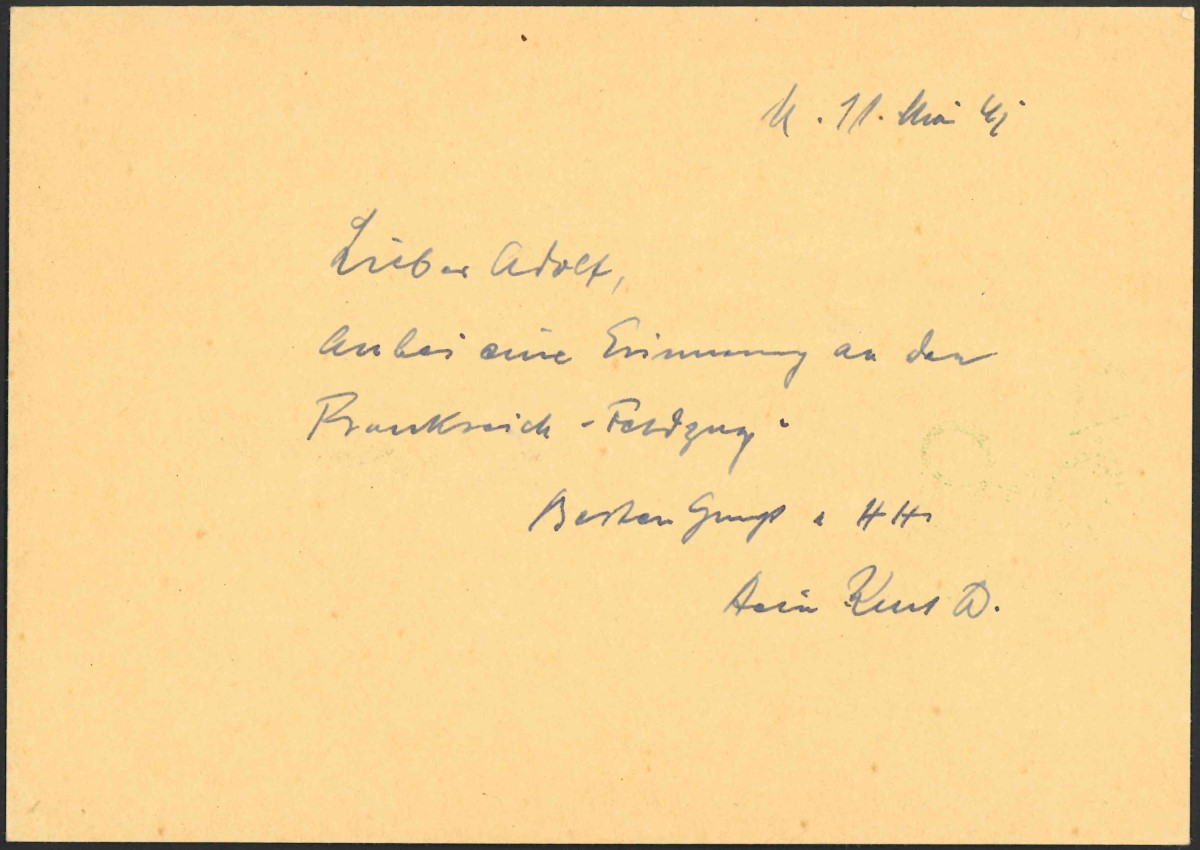 M. 11. Mai 41
Lieber Adolf,
anbei eine Erinnerung an den
Frankreich-Feldzug.
Besten Gruß u HH.
Dein Kurt D.